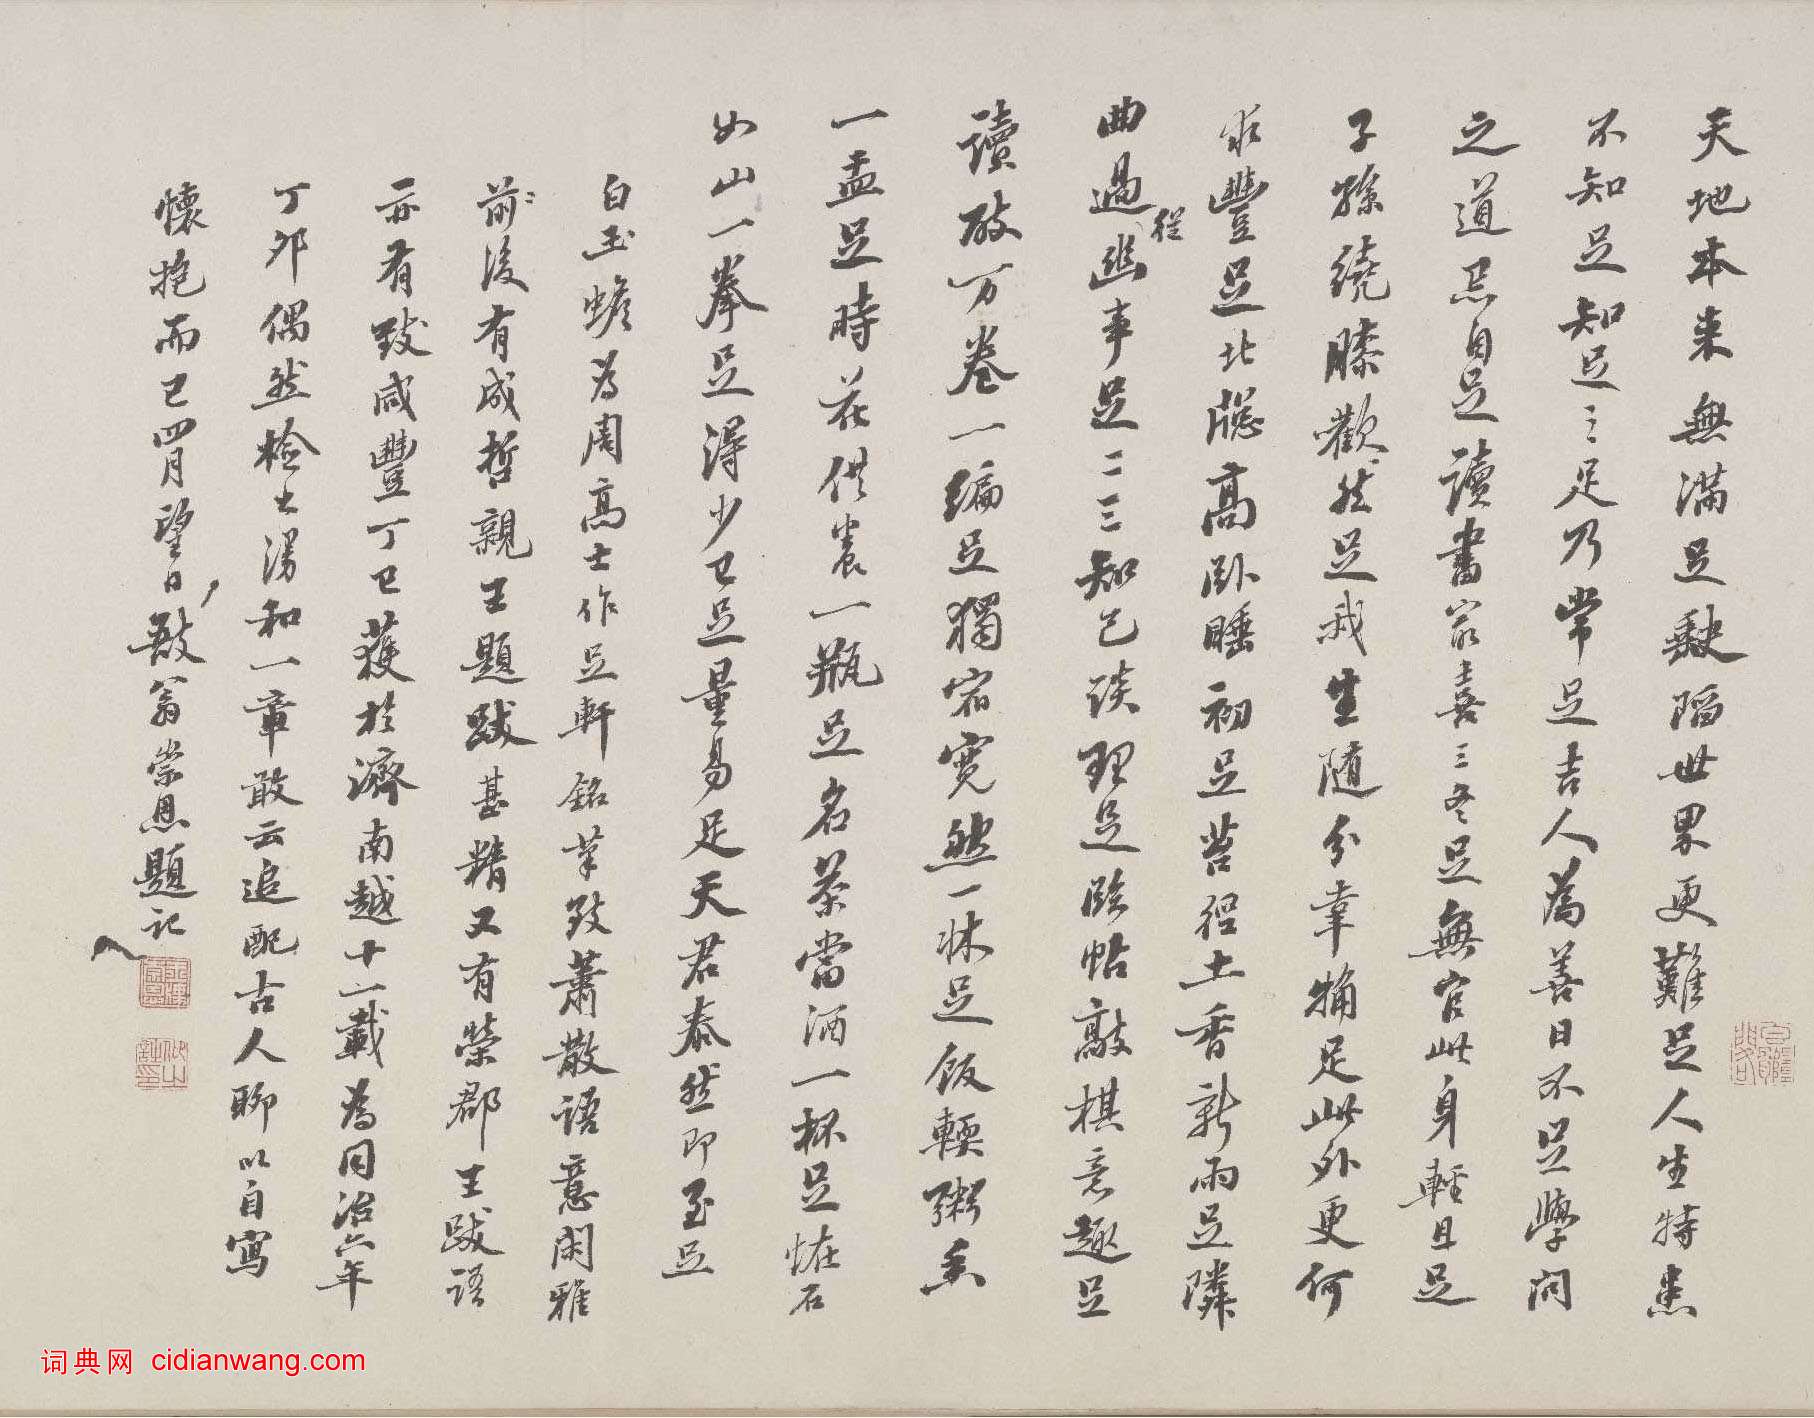 天地本来無滿足缺陷世界更難足人生特患
不知足知足三足乃常足吉人為善日不足學問
之道忌自足讀書最喜三冬足無官此身輕且足
子孫繞膝歡然足我生随分韋
足此外更何
求豐足北牕高卧睡初足苔徑土香新雨足隣
曲過從幽事足二三知己談理足臨帖敲棋意趣足
讀破万卷一編足獨宿寬然一牀足飯輭粥香
一盂足時花供養一瓶足名茶當酒一杯足恠石
如山一拳足得少已足量易足天君泰然即至足
白玉蟾為周高士作足軒銘筆致蕭散語意閑雅
前後有成哲親王題跋甚精又有榮郡王跋語
亦有致咸豐丁巳獲於濟南越十一載為同治六年
丁卯偶然檢出漫和一章敢云追配古人聊以自寫
懷抱而已四月望日敔翁崇恩題記
词典网 cidianwang.com